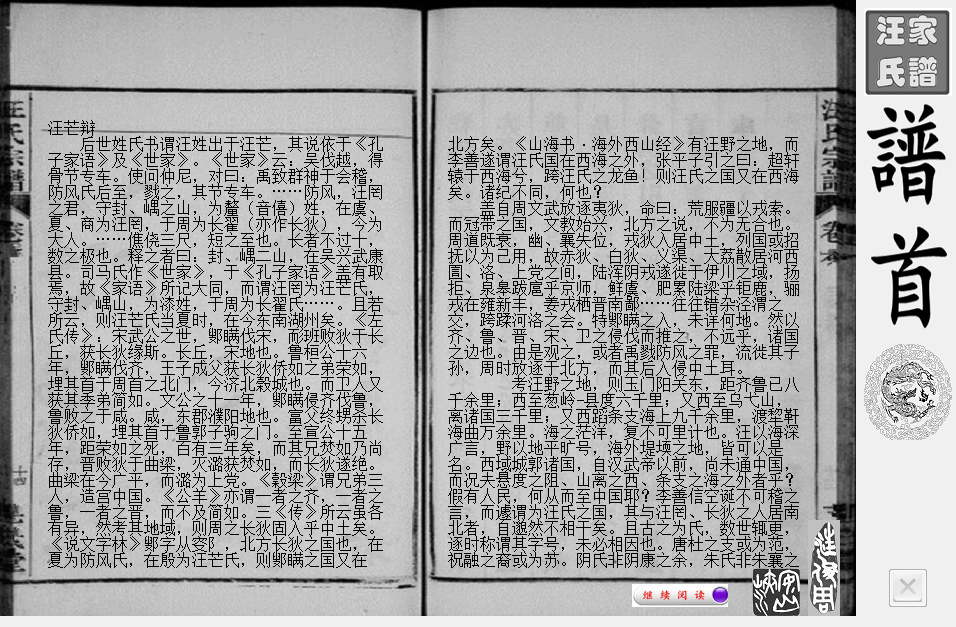 汪芒辩
后世姓氏书谓汪姓出于汪芒，其说依于《孔
子家语》及《世家》。《世家》云：吴伐越，得
骨节专车。使问仲尼，对曰：禹致群神于会稽，
防风氏后至，戮之，其节专车。……防风，汪罔
之君，守封、嵎之山，为釐（音僖）姓，在虞、
夏、商为汪罔，于周为长翟（亦作长狄），今为
大人。……僬侥三尺，短之至也。长者不过十，
数之极也。释之者曰：封、嵎二山，在吴兴武康
县。司马氏作《世家》，于《孔子家语》盖有取
焉，故《家语》所记大同，而谓汪罔为汪芒氏，
守封、嵎山，为漆姓，于周为长翟氏……。且若
所云，则汪芒氏当夏时，在今东南湖州矣。《左
氏传》：宋武公之世，鄋瞒伐宋，而班败狄于长
丘，获长狄缘斯。长丘，宋地也。鲁桓公十六
年，鄋瞒伐齐，王子成父获长狄侨如之弟荣如，
埋其首于周首之北门，今济北穀城也。而卫人又
获其季弟简如。文公之十一年，鄋瞒侵齐伐鲁，
鲁败之于咸。咸，东郡濮阳地也。富父终甥杀长
狄侨如，埋其首于鲁郭子驹之门。至宣公十五
年，距荣如之死，百有三年矣，而其兄焚如乃尚
存，晋败狄于曲梁，灭潞获焚如，而长狄遂绝。
曲梁在今广平，而潞为上党。《穀梁》谓兄弟三
人，造宫中国。《公羊》亦谓一者之齐，一者之
鲁，一者之晋，而不及简如。三《传》所云虽各
有异，然考其地域，则周之长狄固入乎中土矣。
《说文字林》鄋字从㚇阝，北方长狄之国也，在
夏为防风氏，在殷为汪芒氏，则鄋瞒之国又在
北方矣。《山海书·海外西山经》有汪野之地，而
李善遂谓汪氏国在西海之外，张平子引之曰：超轩
辕于西海兮，跨汪氏之龙鱼！则汪氏之国又在西海
矣。诸纪不同，何也？
盖自周文武放逐夷狄，命曰：荒服疆以戎索。
而冠带之国，文教始兴，北方之说，不为无合也。
周道既衰，幽、襄失位，戎狄入居中土，列国或招
抚以为己用，故赤狄、白狄、义渠、大荔散居河西
圁、洛、上党之间，陆浑阴戎遂徙于伊川之域，扬
拒、泉皋跋扈乎京师，鲜虞、肥累陆梁乎钜鹿，骊
戎在雍新丰，姜戎栖晋南鄙……往往错杂泾渭之
交，跨蹂河洛之会。特鄋瞒之入，未详何地。然以
齐、鲁、晋、宋、卫之侵伐而推之，不远乎，诸国
之边也。由是观之，或者禹戮防风之罪，流徙其子
孙，周时放逐于北方，而其后人侵中土耳。
考汪野之地，则玉门阳关东，距齐鲁已八
千余里；西至葱岭-县度六千里；又西至乌弋山，
离诸国三千里；又西蹈条支海上九千余里，渡犁靬
海曲万余里。海之茫洋，夐不可里计也。汪以海深
广言，野以地平旷号，海外堤堧之地，皆可以是
名。西域城郭诸国，自汉武帝以前，尚未通中国，
而况夫悬度之阻、山离之西、条支之海之外者乎？
假有人民，何从而至中国耶？李善信空诞不可稽之
言，而遽谓为汪氏之国，其与汪罔、长狄之人居南
北者，自邈然不相干矣。且古之为氏，数世辄更，
逐时称谓其字号，未必相因也。唐杜之支或为范，
祝融之裔或为苏。阴氏非阴康之余，朱氏非朱襄之
继续阅读
汪家
氏譜
譜首